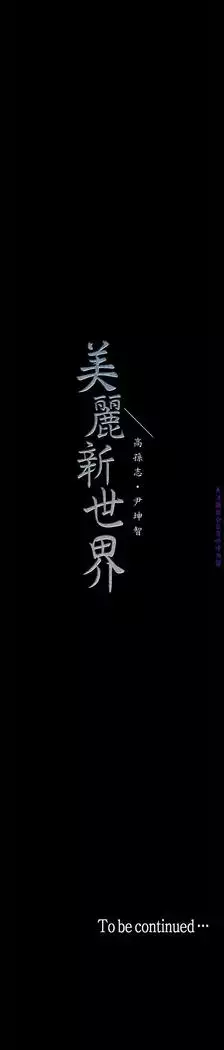 美麗新世界
高孫志·尹坤智
To be continued…